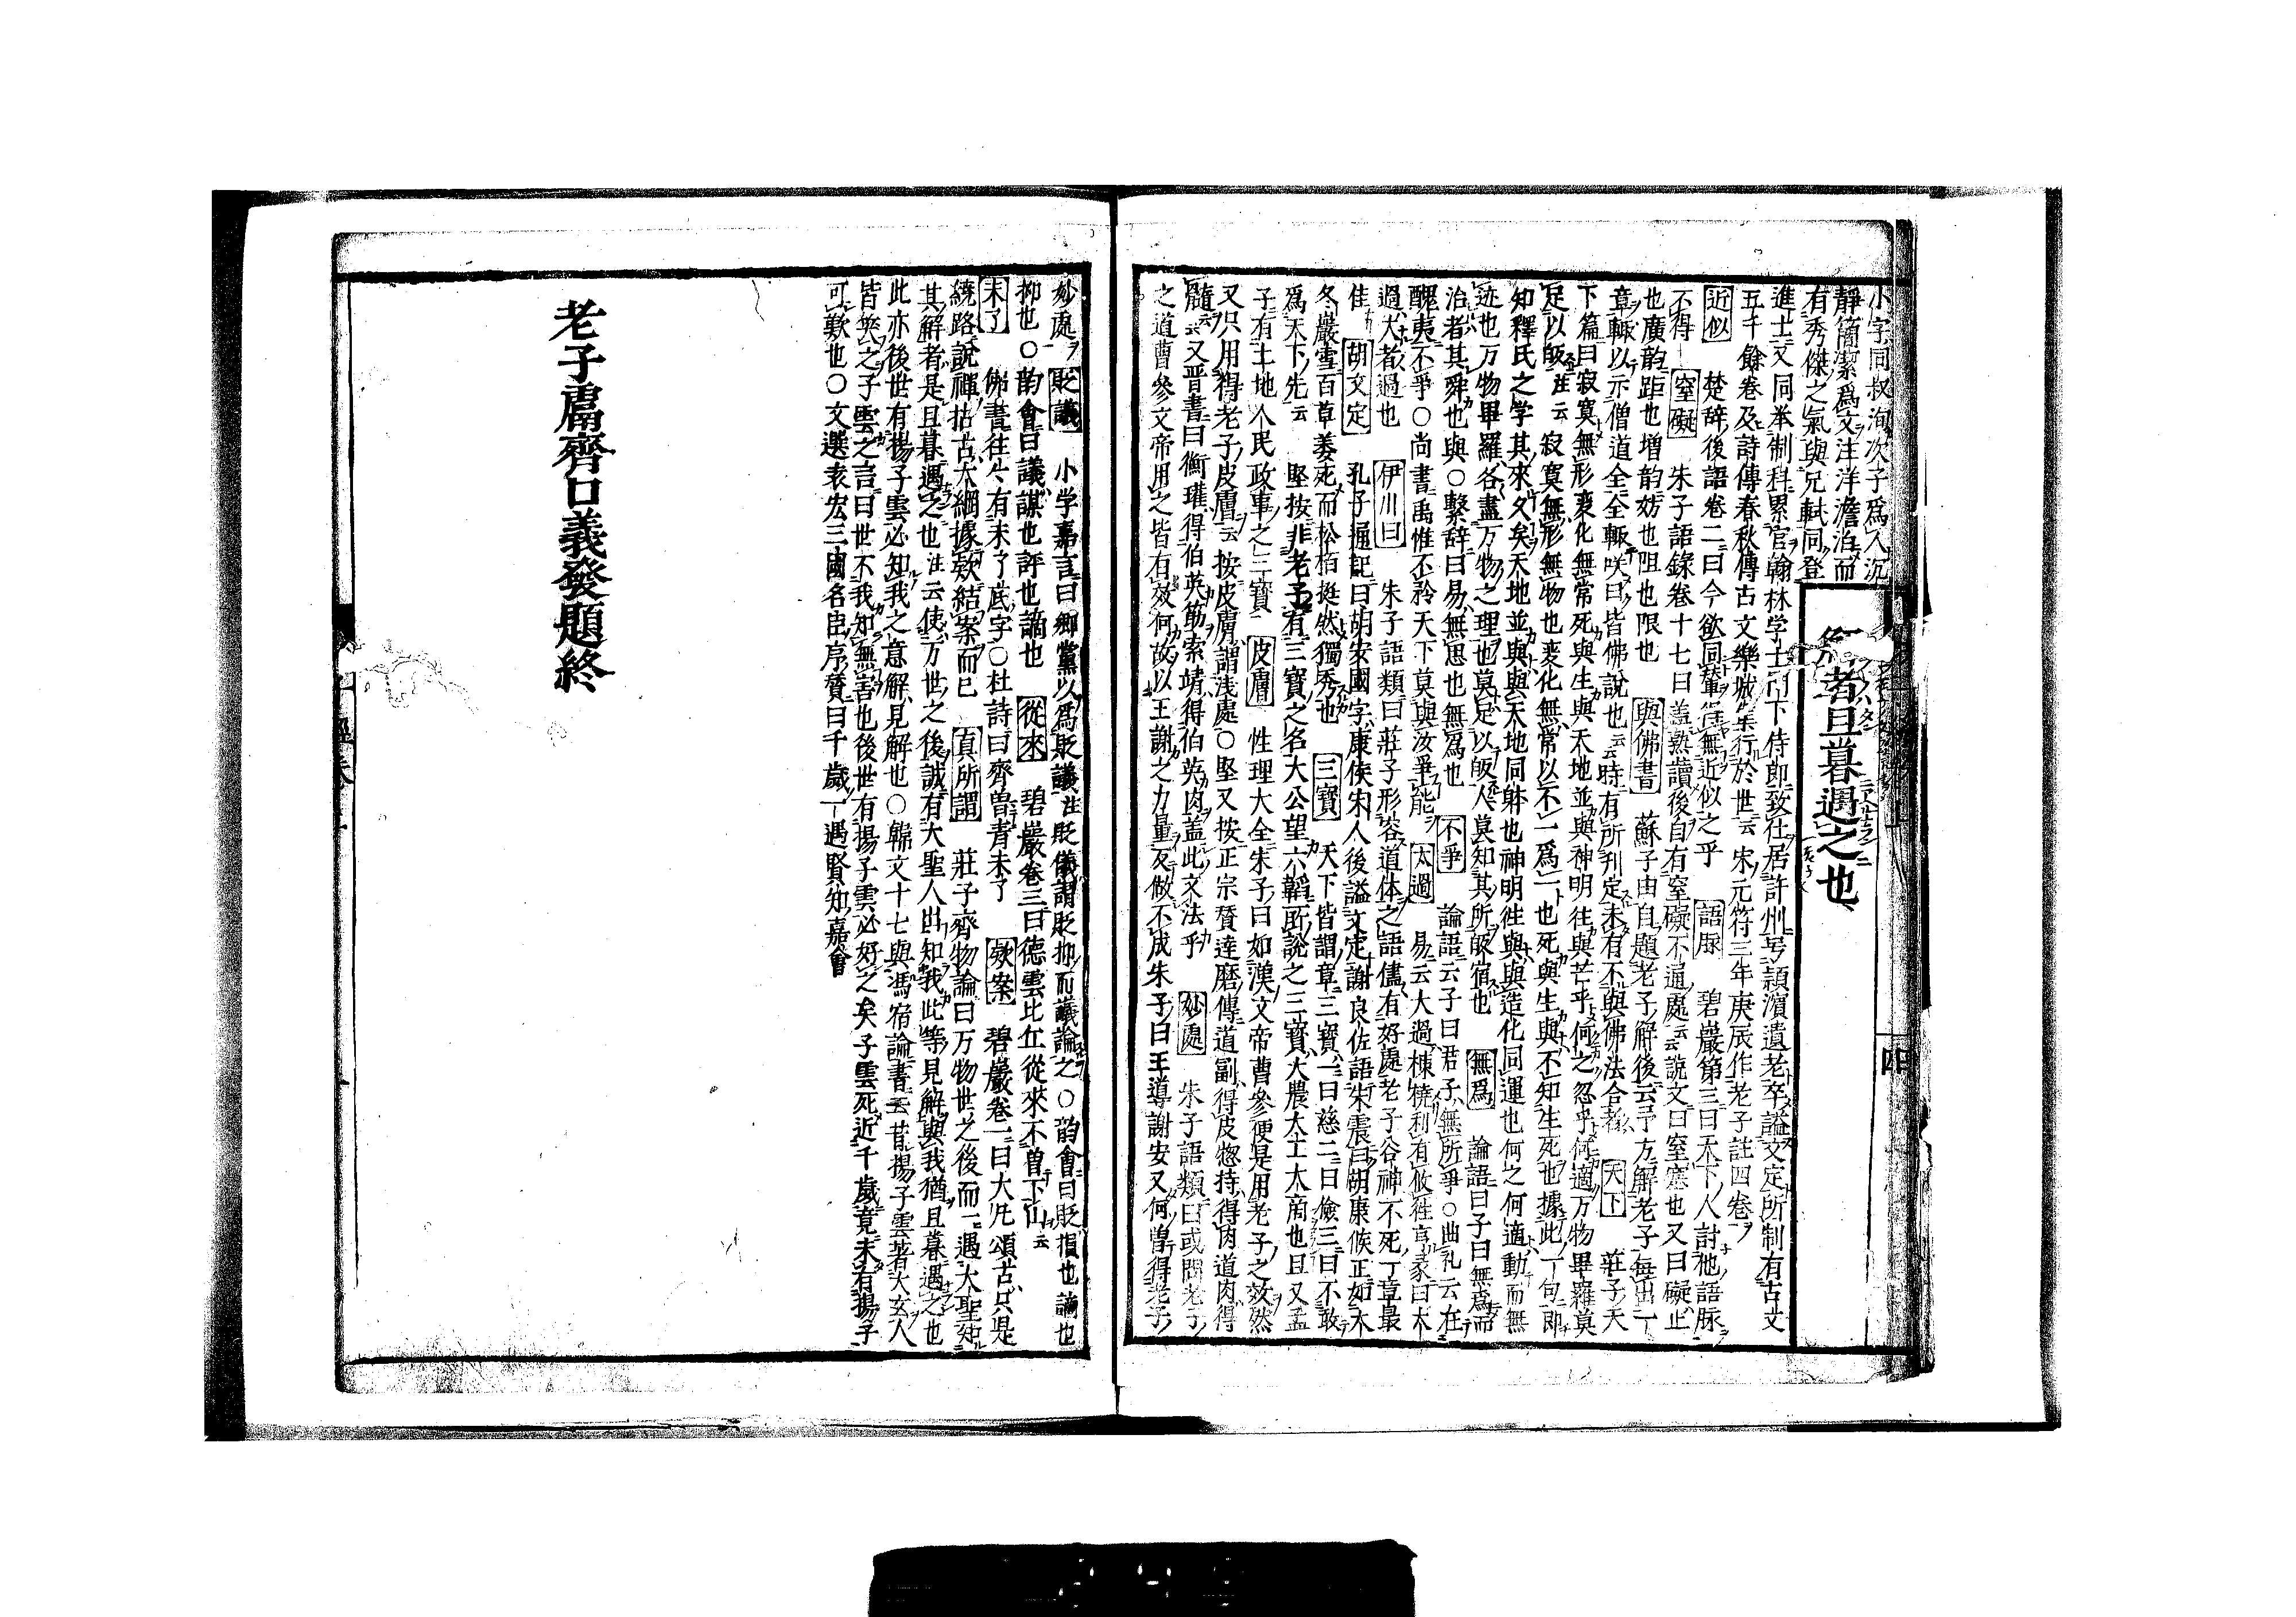 解者且暮遇之也
小字同叔洵次子爲人沉
靜簡潔爲文汪洋澹泊而
有秀傑之氣與兄軾同登
進士又同举制科累官翰林学士門下侍郎致仕居許州号頴濵遺老卒謚文定所制有古文
五千餘卷及詩傳春秋傳古文樂城集行於世云宋元符三年庚辰作老子註四卷
近似 楚辞後語卷二曰今欲同輦得無近似之乎 語脉 碧巖第三曰天下人討他語脉
不得 窒礙 朱子語錄卷十七曰盖熟讀後自有窒礙不通處云云説文曰窒塞也又曰礙止
也廣韵距也増韵妨也阻也限也 與佛書 蘇子由自題老子解後云予方解老子每出一
章輙以示僧道全全輙咲曰皆佛説也云云時有所刋定未有不與佛法合者 天下 莊子天
下篇曰寂寞無形変化無常死與生與天地並與神明徃與芒乎何之忽乎何適万物畢羅莫
足以皈註云 寂寞無形無物也変化無常以不一爲一也死與生與不知生死也據此一句即
知釋氏之学其來久矣天地並與與天地同躰也神明徃與與造化同運也何之何適動而無
迹也万物畢羅各盡万物之理也莫足以皈人莫知其所皈宿也 無爲 論語曰子曰無爲而
治者其舜也與○繫辞曰易無思也無爲也 不爭 論語云子曰君子無所爭○曲礼云在
醜夷不爭○尚書禹惟不矜天下莫與汝爭能 太過 易云大過棟橈利有攸徃亨彖曰大
過大者過也 伊川曰 朱子語類曰莊子形容道体之語儘有好處老子谷神不死一章最
佳 胡文定 孔子通記曰胡安國字康侯宋人後謚文定謝良佐語朱震曰胡康候正如大
冬嚴雪百草萎死而松栢挺然獨秀也 三寶 天下皆謂章三寶一曰慈二曰儉三曰不敢
爲天下先云 堅按非老子有三寶之名大公望六韜所説之三寶大農大工大商也且又孟
子有土地人民政事之三寶 皮膚 性理大全朱子曰如漢文帝曹參便是用老子之效然
又只用得老子皮膚云按皮膚謂浅處○堅又按正宗賛達磨傳道副得皮惣持得肉道育得
髓云又晋書曰衞瓘得伯英筋索靖得伯英肉盖此文法乎 妙處 朱子語類曰或問老子
之道曹參文帝用之皆有效何故以王謝之力量反做不成朱子曰王導謝安又何曽得老子
妙處 貶議 小学嘉言曰鄉黨以爲貶議註貶儀謂貶抑而議論之○韵會曰貶損也謫也
抑也○韵會曰議謀也評也謫也 從來 碧巖卷三曰德雲比丘從來不曽下山云
未了 佛書往々有未了底字○杜詩曰齊魯青未了 欵案 碧巖卷一曰大凢頌古只是
繞路説禪拈古大綱據欵結案而已 真所謂 莊子齊物論曰万物世之後而一遇大聖知
其解者是且暮遇之也註云使万世之後誠有大聖人出知我此等見解與我猶且暮遇之也
此亦後世有揚子雲必知我之意解見解也○韓文十七與馮宿論書云昔揚子雲著大玄人
皆笑之子雲之言曰世不我知無害也後世有揚子雲必好之矣子雲死近千歲竟未有揚子
可歎也○文選袁宏三國名臣序賛曰千歲一遇賢知嘉會
老子鬳齊口義發題終